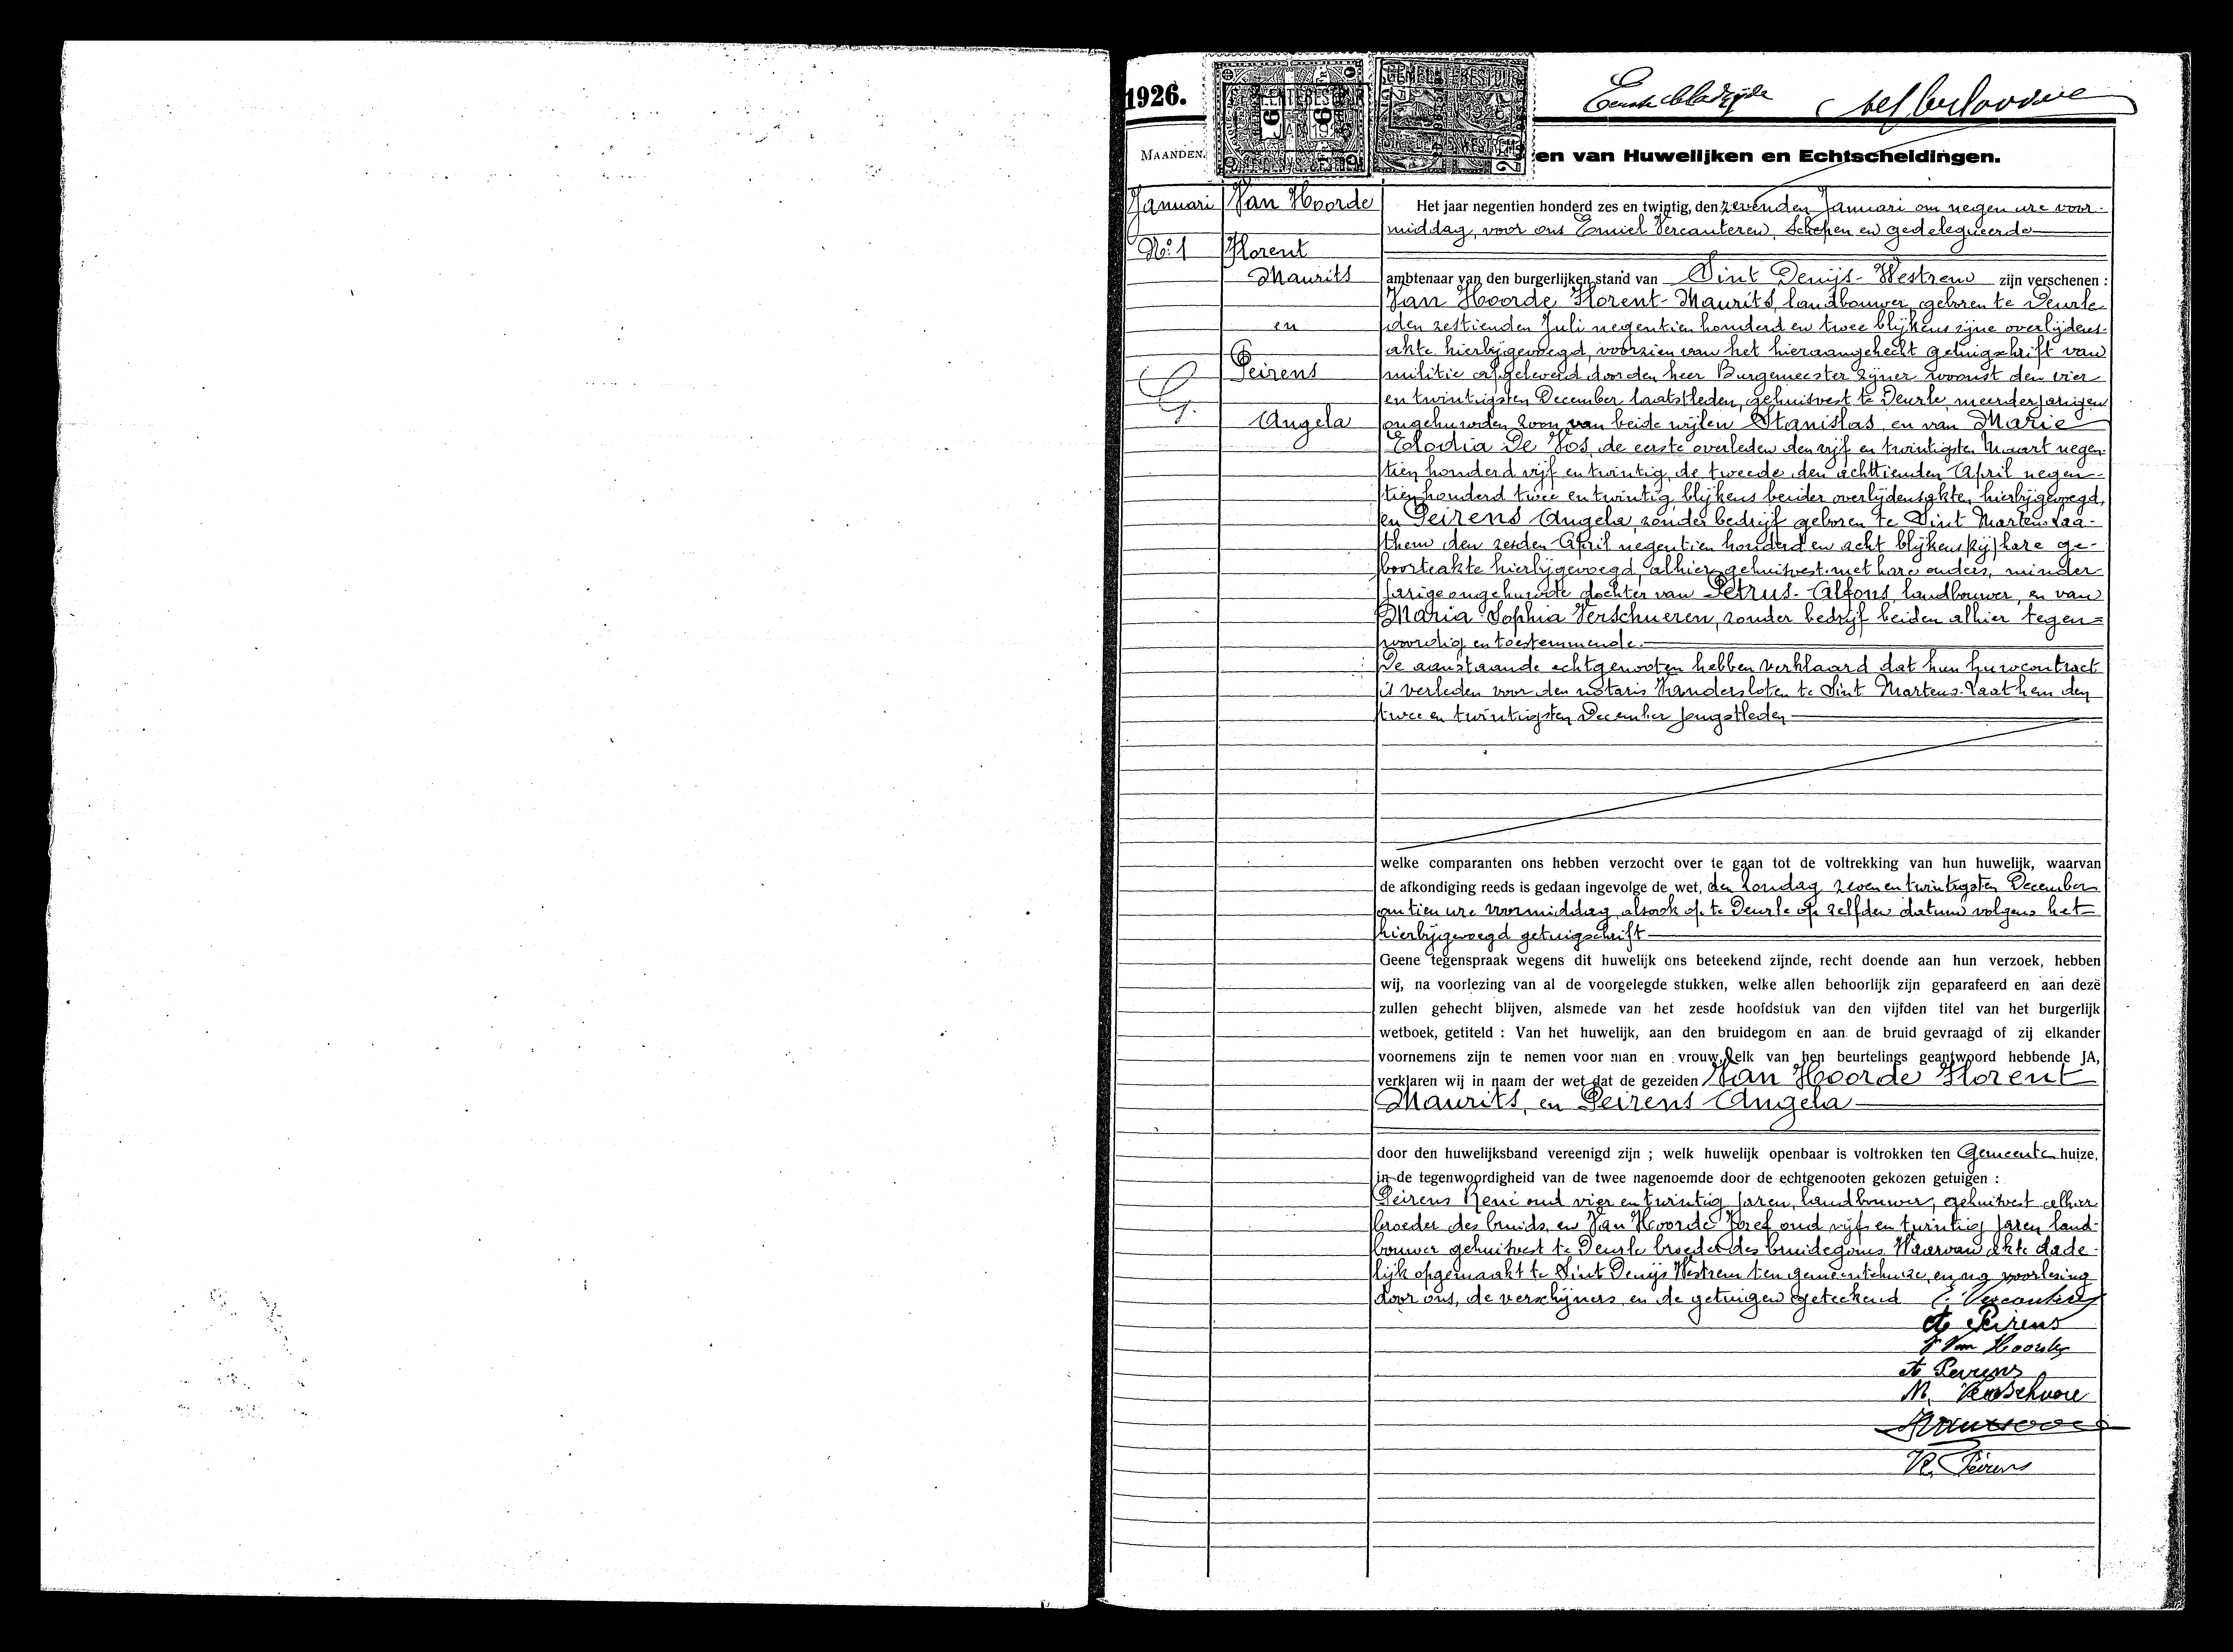 1926.
Eerste bladzijde
MAANDEN.
en van Huwelijken en Echtscheidingen.
Januari
No. 1
Van Hoorde
Florent
Maurits
en
Peirens
Angela
Het jaar negentien honderd zes en twintig, den zevenden Januari om negen ure voor-
middag, voor ons Emiel Vercauteren, Schepen en gedelegueerde
ambtenaar van den burgerlijken stand van Sint Denijs-Westrem zijn verschenen :
Van Hoorde Florent-Maurits, landbouwer, geboren te Deurle
den zestienden Juli negentien honderd en twee blijkens zijne overlijdens-
akte hierbijgevoegd, voorzien van het hieraangehecht getuigschrift van
militie afgeleverd door den heer Burgemeester zijner woonst den vier
en twintigsten December laatstleden, gehuisvest te Deurle, meerderjarigen
ongehuwden zoon van beide wijlen Stanislas en van Marie
Elodia De Vos, de eerste overleden den vijf en twintigsten Maart negen-
tien honderd vijf en twintig, de tweede den achttienden April negen-
tien honderd twee en twintig blijkens beider overlijdensakten hierbijgevoegd,
en Peirens Angela, zonder bedrijf geboren te Sint Martens Laa-
them den zesden April negentien honderd en acht blijkens hare ge-
boorteakte hierbijgevoegd, alhier gehuisvest met hare ouders, minder
jarige ongehuwde dochter van Petrus-Alfons, landbouwer, en van
Maria Sophia Verschueren, zonder bedrijf beiden alhier tegen=
woordig en toestemmende.
De aanstaande echtgenooten hebben verklaard dat hun huwcontract
is verleden voor den notaris Vandersloten te Sint Martens-Laathem den
twee en twintigsten December jongstleden
welke comparanten ons hebben verzocht over te gaan tot de voltrekking van hun huwelijk, waarvan
de afkondiging reeds is gedaan ingevolge de wet, den zondag zeven en twintigsten December
om tien ure voormiddag, alsook op te Deurle op zelfden datum volgens het
hierbijgevoegd getuigschrift
Geene tegenspraak wegens dit huwelijk ons beteekend zijnde, recht doende aan hun verzoek, hebben
wij, na voorlezing van al de voorgelegde stukken, welke allen behoorlijk zijn geparafeerd en aan deze
zullen gehecht blijven, alsmede van het zesde hoofdstuk van den vijfden titel van het burgerlijk
wetboek, getiteld : Van het huwelijk, aan den bruidegom en aan de bruid gevraagd of zij elkander
voornemens zijn te nemen voor man en vrouw, elk van hen beurtelings geantwoord hebbende JA,
verklaren wij in naam der wet dat de gezeiden Van Hoorde Florent
Maurits, en Peirens Angela
door den huwelijksband vereenigd zijn ; welk huwelijk openbaar is voltrokken ten Gemeentenhuize,
in de tegenwoordigheid van de twee nagenoemde door de echtgenooten gekozen getuigen :
Peirens René oud vier en twintig jaren, landbouwer, gehuisvest alhier
broeder des bruids, en Van Hoorde Jozef oud vijf en twintig jaren land-
bouwer gehuisvest te Deurle broeder des bruidegoms. Waarvan akte dade-
lijk opgemaakt te Sint Denijs Westrem ten gemeentehuize, en na voorlezing
door ons, de verschijners en de getuigen geteekend E. Vercauteren
A Peirens
F Van Hoorde
A. Peirens
M. Verschuere
R. Peirens